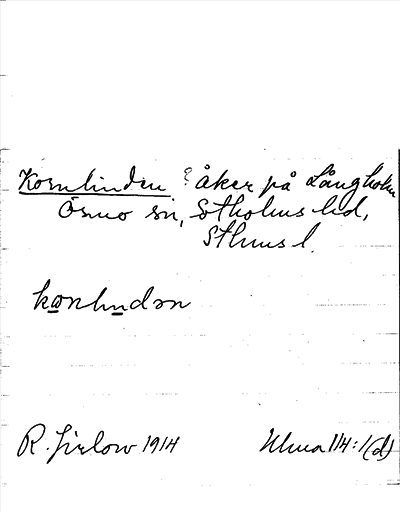 Kornlinden åker på Långholm
Ösmo sn, Sotholms hd,
Sthms l.
kornlindən
R. Jirlow 1914
Ulma 114:1(d)